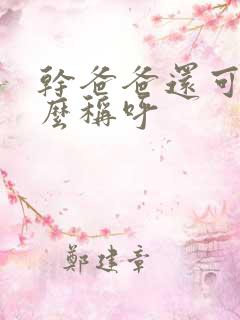 幹爸爸還可
麼稱呼
鄭建章